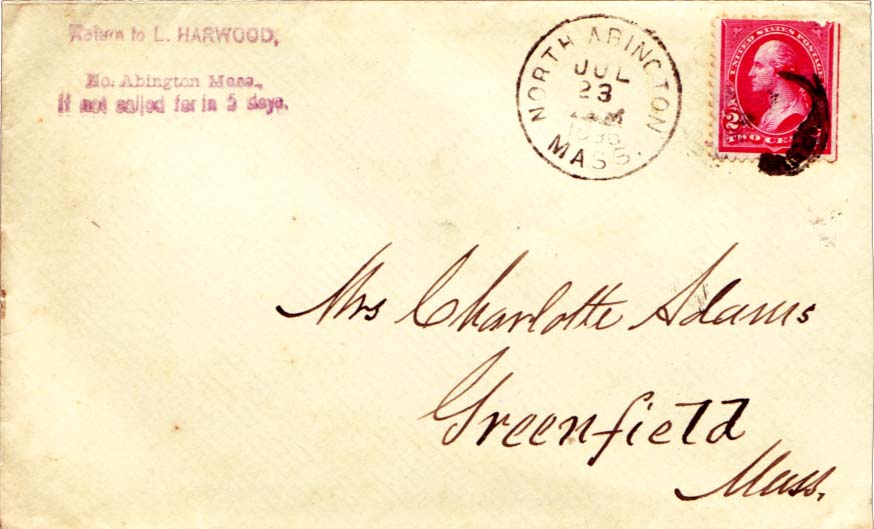 Return to L. HARWOOD,
No. Abington Mass.,
If not called for in 5 days.
NORTH ABINGTON
JUL
23
MASS.
UNITED STATES POSTAGE
2
TWO CE
Mrs Charlotte Adams
Greenfield
Mass.